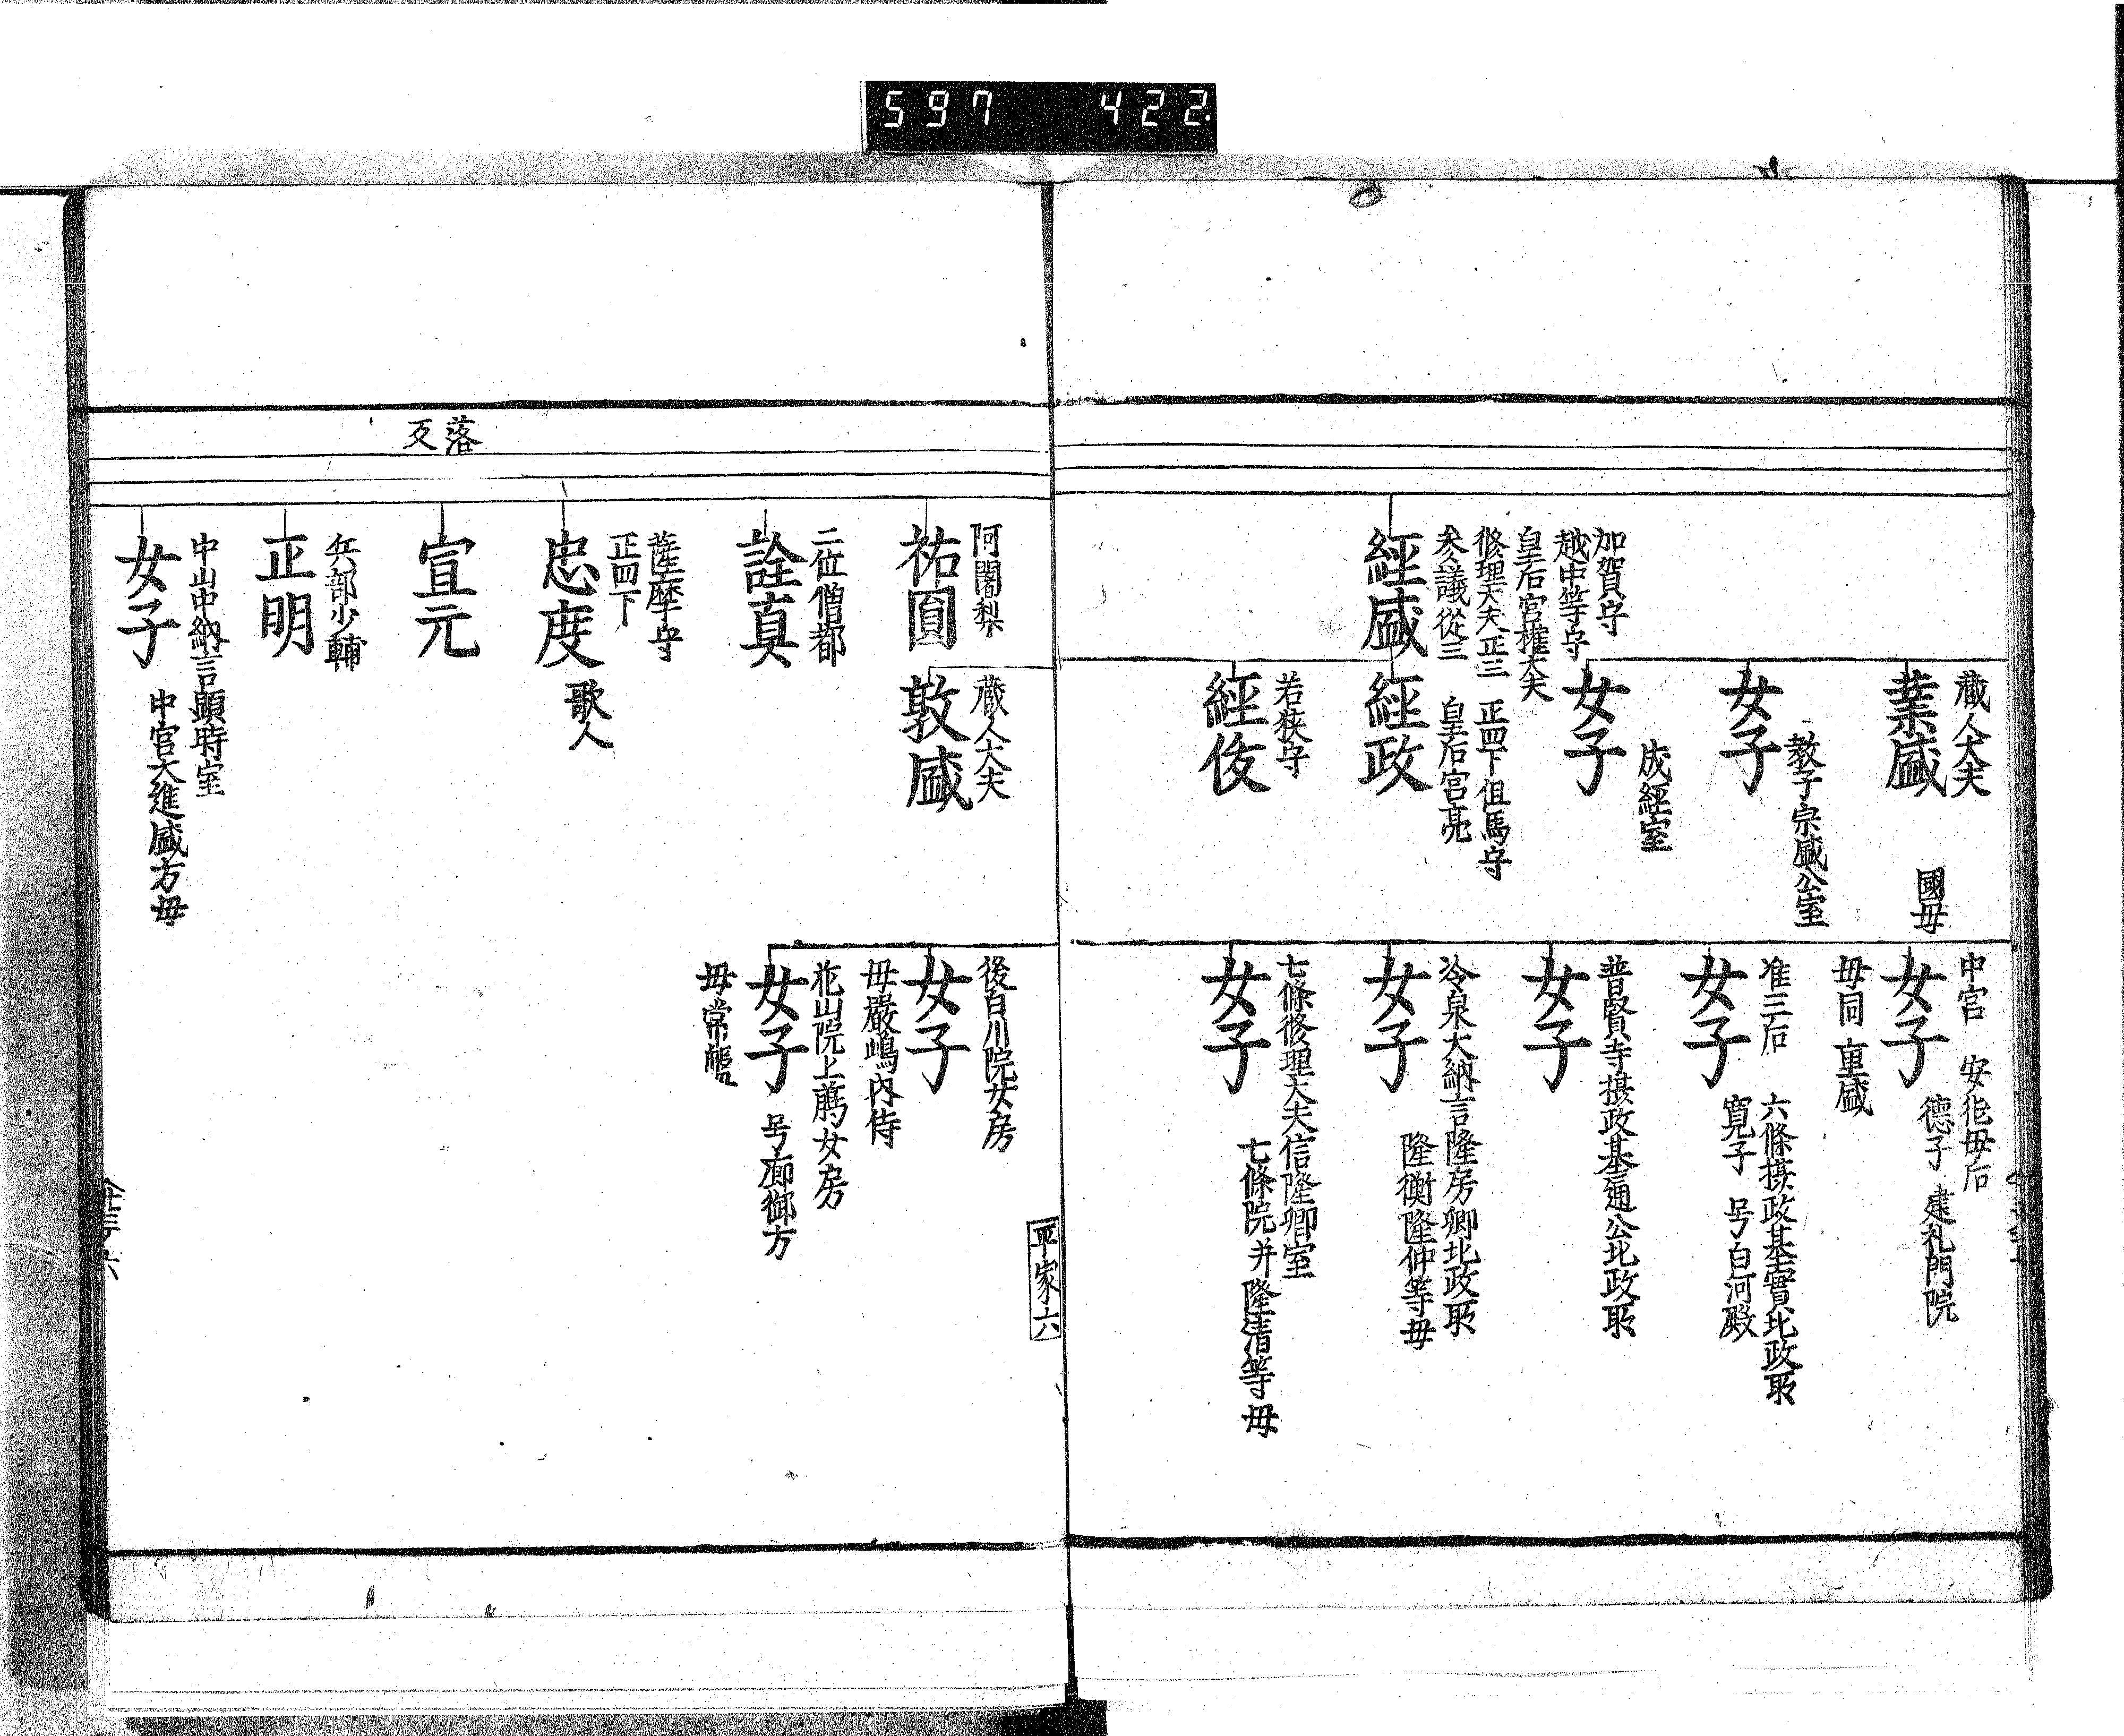 597 422.
加賀守
越中等守
皇后宮權大夫
修理大夫正三
參議從三
經盛
藏人大夫
業盛
教子宗盛公室
女子
成經室
女子
正四下但馬守
皇后宮亮
經政
若狹守
經俊
國母
中宮 安化母后
女子
德子 建礼門院
母同重盛
准三后 六條摂政基實北政所
女子
寛子 号白河殿
普賢寺摂政基通公北政所
女子
冷泉大納言隆房卿北政所
女子
隆衡隆仲等母
七條修理大夫信隆卿室
女子
七條院并隆清等母
平家六
落
阿闍梨
祐圓
二位僧都
詮真
薩摩守
正四下
忠度
歌人
宣元
兵部少輔
正明
中山中納言顕時室
女子
中宮大進盛方母
藏人大夫
敦盛
後白川院女房
女子
母嚴嶋内侍
花山院上﨟女房
女子
号廊御方
母常